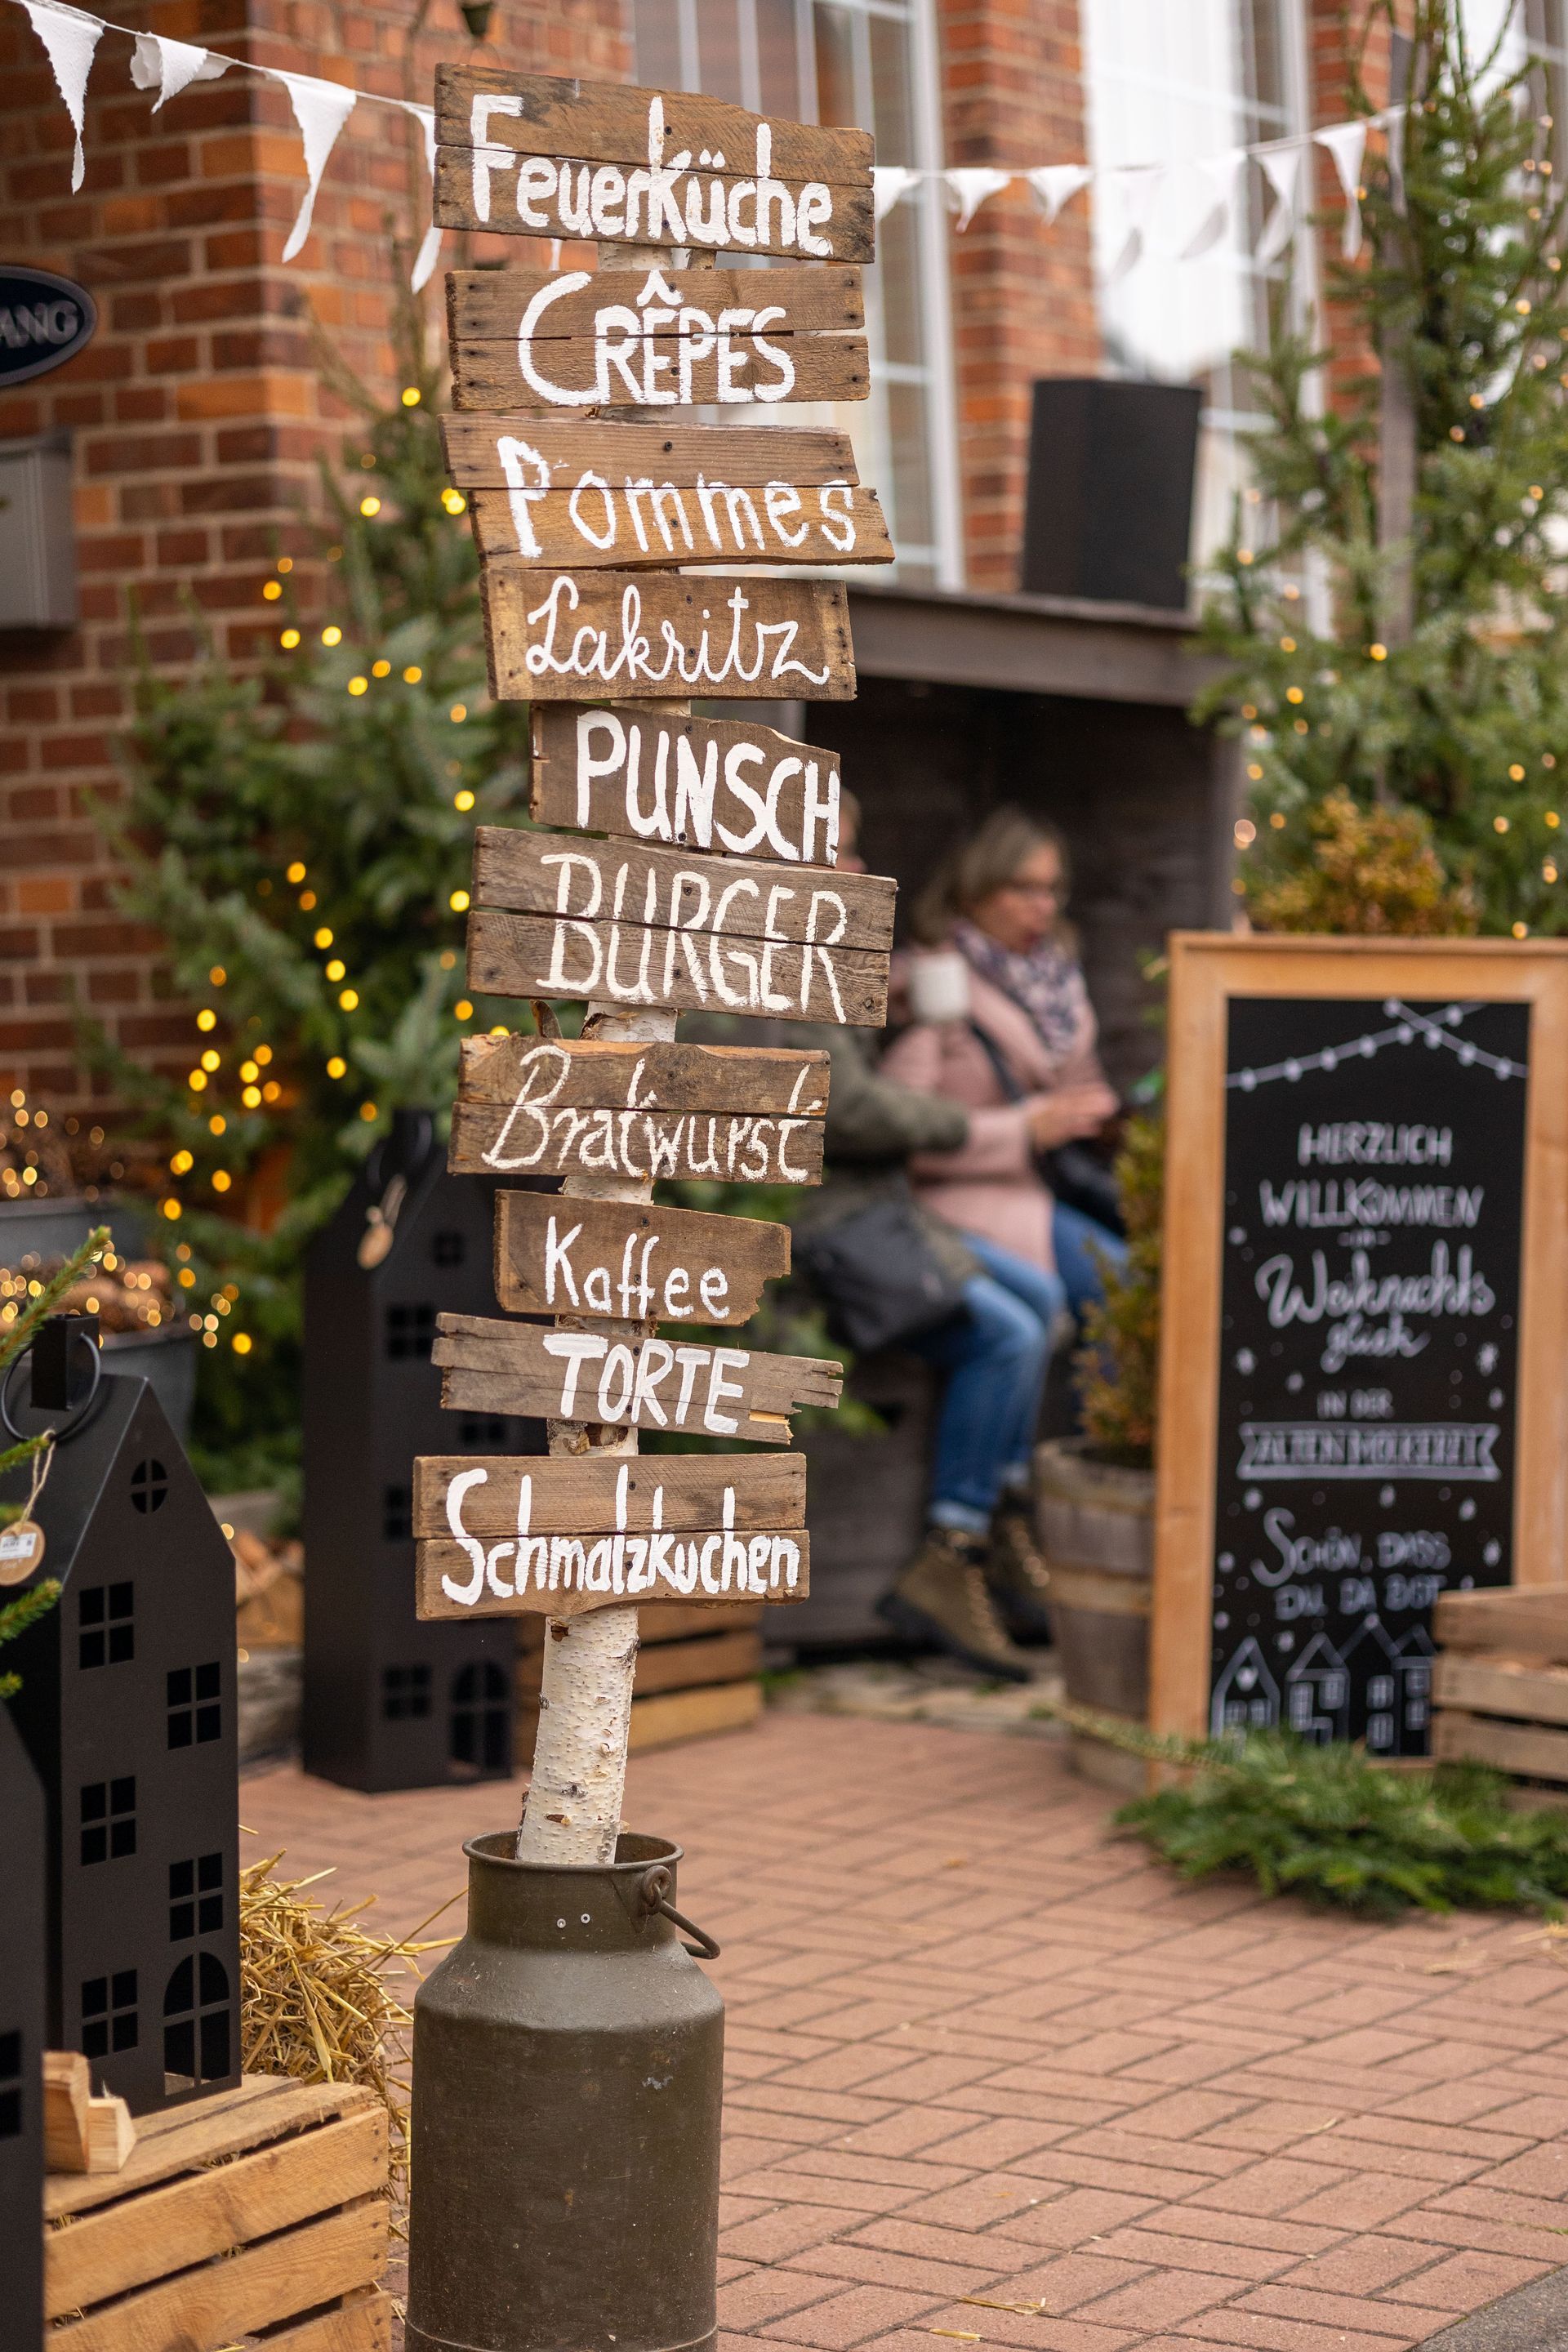 Feuerküche
CRÊPES
Pommes
Lakritz
PUNSCH
BURGER
Bratwurst
Kaffee
TORTE
Schmalzkuchen
ANG
HERZLICH
WILLKOMMEN
Weihnachts
glück
IN DER
ALTEN MOLKEREI
SCHÖN, DASS
DU DA BIST